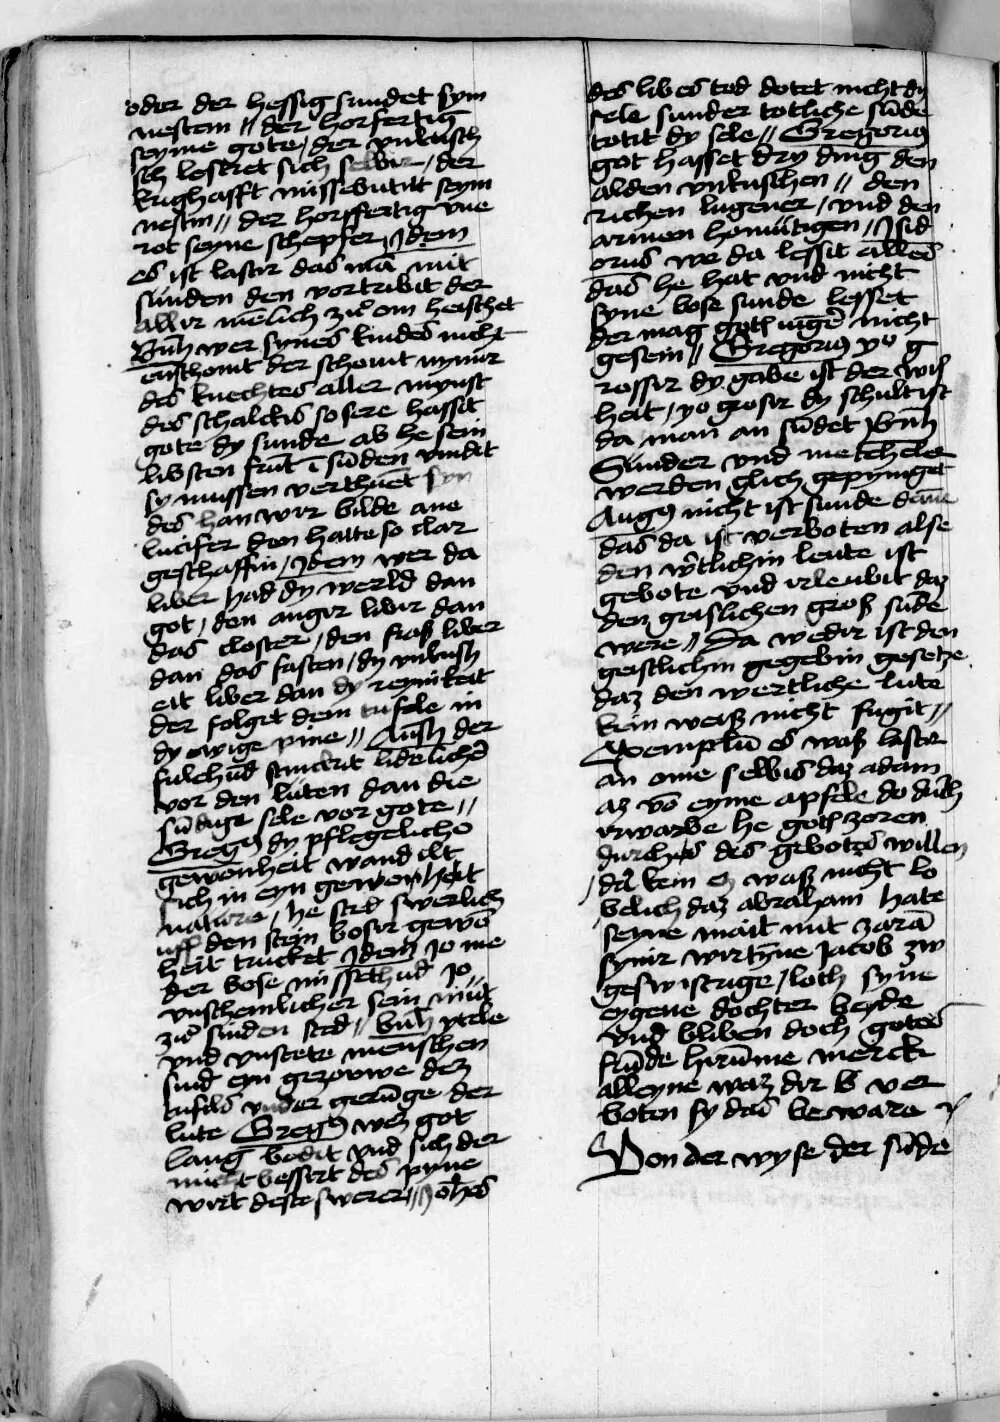 oder der hessig sundet sym
nestem // der horfertig
seyme gote / der vnkusch
sch lestret sich selbir / der
krighafft missebutitt seym
nestin // der horffertig vne
rot seyne schepfer / Jdem
es ist lastir das mā mit
sunden den vortribit der
allir menlich zuͦ om heischet
Bernh wer synes kindes nicht
enschomt der schomt nymmir
des knechtes aller mynst
des schalckis so sere hassit
gote dy sunde ab he sein
libsten frūt ī sūden vindit
sy mussen verthuēt syn
des han wir bilde ane
lucifer den hatte so clar
geschaffin / Jdem wer da
liber had dy werld dan
got / den angir libir dan
das closter / den fraß liber
dan das fasten / dy vnkusch
eit liber dan dy reynikeit
der folget dem tufele in
dy ewige pine // Aush der
fulehūd stinckit lidelichē
vor den luten dan die
sūdige sele vor gote //
Gregꝰ dy pflegeliche
gewonheit wandilt
sich in eyn gewonheit
nature / he sted swerlich
uff den stein boser gewō
heit trucket Jdem jo me
der bose missethud jo //
vnschemlicher sein mut
zuͦ sinden sted // bernh ytele
vnd vnstete menschen
sind eyn gezouwe dez
tufils vnder gerūge der
lute Gregꝰ wen got
lang bedit vnd sich der
nicht bessert des pyne
wirt deste swerer // Johēs
des libes tod dotet nicht dy
sele sunder totliche sūde
totit dy sele // Gregorius
got hasset dry ding den
alden vnkuschen // den
richen lugener / vnd den
armen homutigen / Jsid
orus we da lessit alles
das he hat vnd nicht
syne bose sunde lesset
der mag gotz iūgē nicht
gesein // Gregorius yo g
rossir dy gabe ist der wis
heit / yo grosir dy schult ist
da man an sūdet bernh
Sunder vnd metehele
werden glich gepyniget
Augꝰ nicht ist sunde dane
das da ist verboten alse
den wertlichin leute ist
gebote vnd irleubit daz
den geislichen groß sūde
were // Da wedir ist den
geistlichin gegebin gesetze
daz den wertliche lute
kein weiß nicht fugit //
Exemplū es waß lastir
an ome selbis daz adam
az vō eyme apfele do durch
irwarbe he gotz zoren
durch des gebotes willen
/ da kein ez waß nicht lo
belich daz abraham hate
seyne mait mit zarā
synir wirtyne Jacob zw
geswistrige / loth syne
eygene dochter beyde
vnd bliben doch gotes
frūde hirūme mercke
alleyne waz dir b ver
boten sy daz beware
Von der wyse der sūde